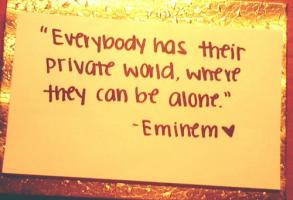 "Everybody has their
private world, where
they can be alone."
-Eminem♥